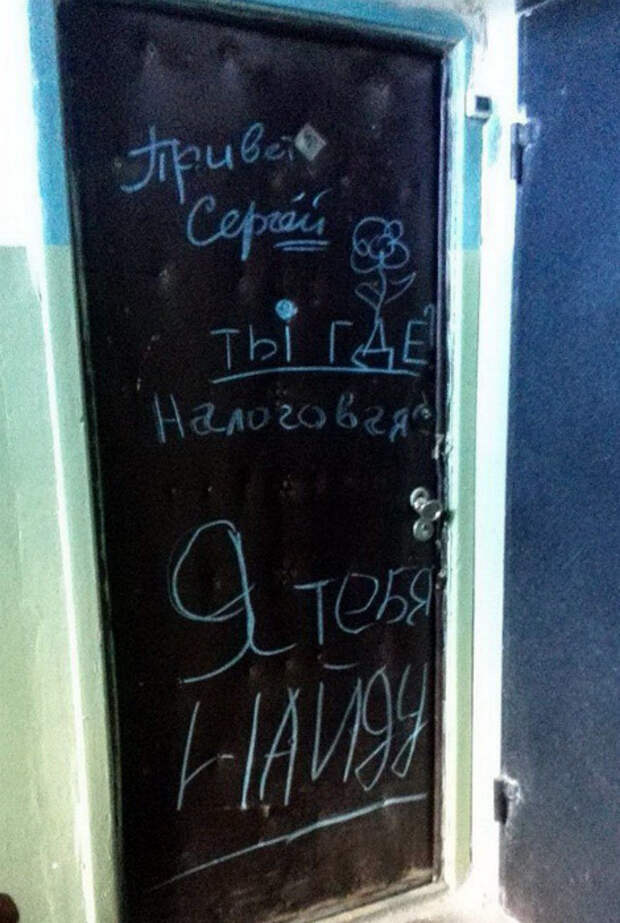 Привет
Сергей
ты где?
Налоговая
Я тебя
найду